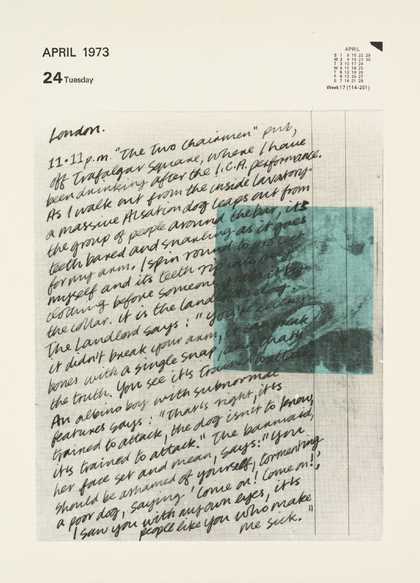 APRIL 1973
24 Tuesday
APRIL
S 1 8 15 22 29
M 2 9 16 23 30
T 3 10 17 24
W 4 11 18 25
T 5 12 19 26
F 6 13 20 27
S 7 14 21 28
Week 17 (114-251)
London.
11.11 p.m. "The Two Chairmen" pub,
off Trafalgar Square, where I have
been drinking after the I.C.A. performance.
As I walk out from the inside lavatory
a massive Alsation dog leaps out from
the group of people around the bar, its
teeth bared and snarling as it goes
for my arm. I spin round to protect
myself and its teeth rip into my
clothing before someone
the collar. It is the landlord's dog.
The Landlord says: "You're lucky
it didn't break your arm, it can break
bones with a single snap, that's
the truth. You see it's trained to attack."
An albino boy with subnormal
features says: "That's right, it's
trained to attack, the dog isn't to know,
it's trained to attack." The barmaid,
her face set and mean, says: "You
should be ashamed of yourself, tormenting
a poor dog, saying 'Come on! Come on!',
I saw you with my own eyes, it's
people like you who make
me sick."